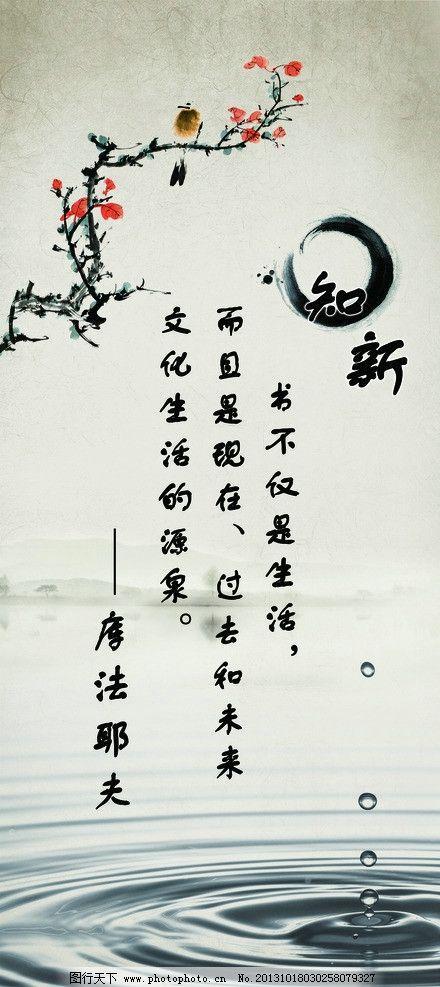 知新
书不仅是生活，
而且是现在、过去和未来
文化生活的源泉。
——库法耶夫
图行天下 www.photophoto.cn No.20131018030258079327